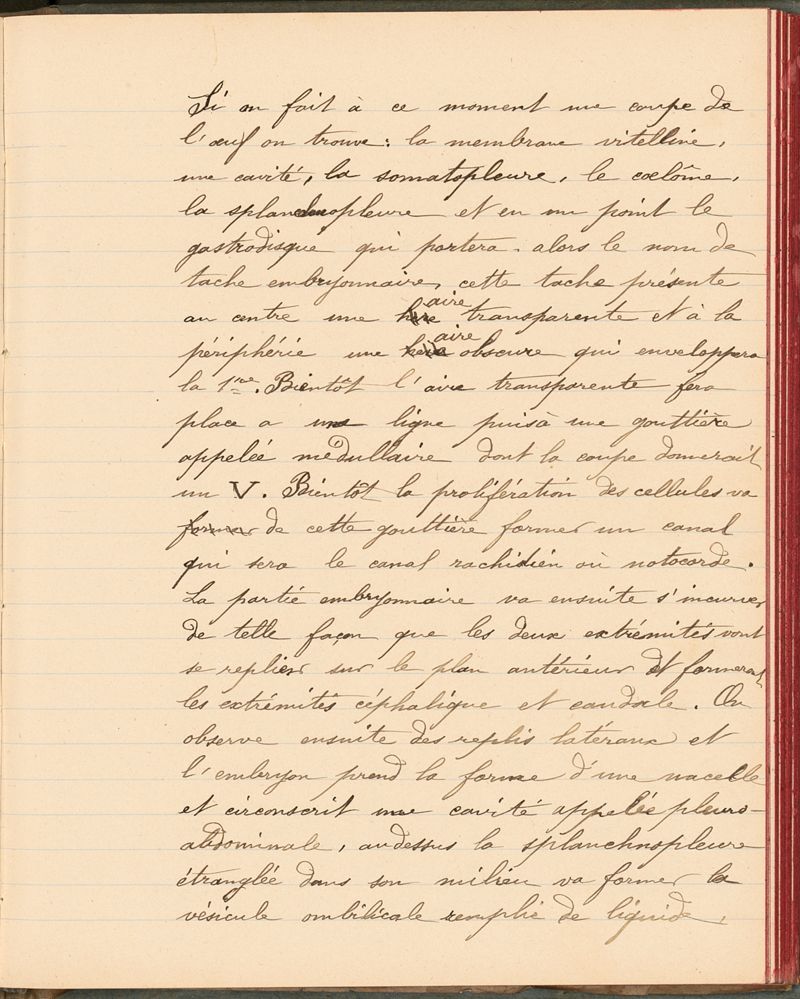 Si on fait à ce moment une coupe de
l'œuf on trouve: la membrane vitelline,
une cavité, la somatopleure, le cœlôme,
la splanchnopleure et en un point le
gastrodisque qui portera alors le nom de
tache embryonnaire, cette tache présente
au centre une aire transparente et à la
périphérie une aire obscure qui enveloppera
la 1re. Bientôt l'aire transparente fera
place a une ligne puis à une gouttière
appelée médullaire dont la coupe donnerait
un V. Bientôt la prolifération des cellules va
former de cette gouttière former un canal
qui sera le canal rachidien où notocorde.
La partie embryonnaire va ensuite s'incurver
de telle façon que les deux extrémités vont
se replier sur le plan antérieur et formeront
les extrémités céphalique et caudale. On
observe ensuite des replis latéraux et
l'embryon prend la forme d'une nacelle
et circonscrit une cavité appelée pleuro-
abdominale, au dessus la splanchnopleure
étranglée dans son milieu va former la
vésicule ombilicale remplie de liquide,